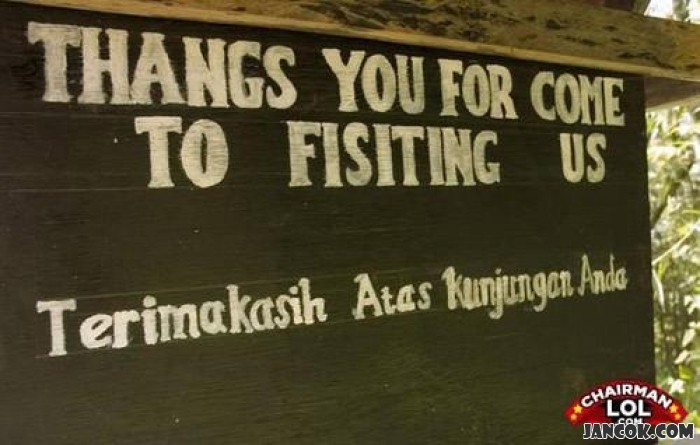 THANGS YOU FOR COME
TO FISITING US
Terimakasih Atas Kunjungan Anda
CHAIRMAN
LOL
.COM
JANCOK.COM